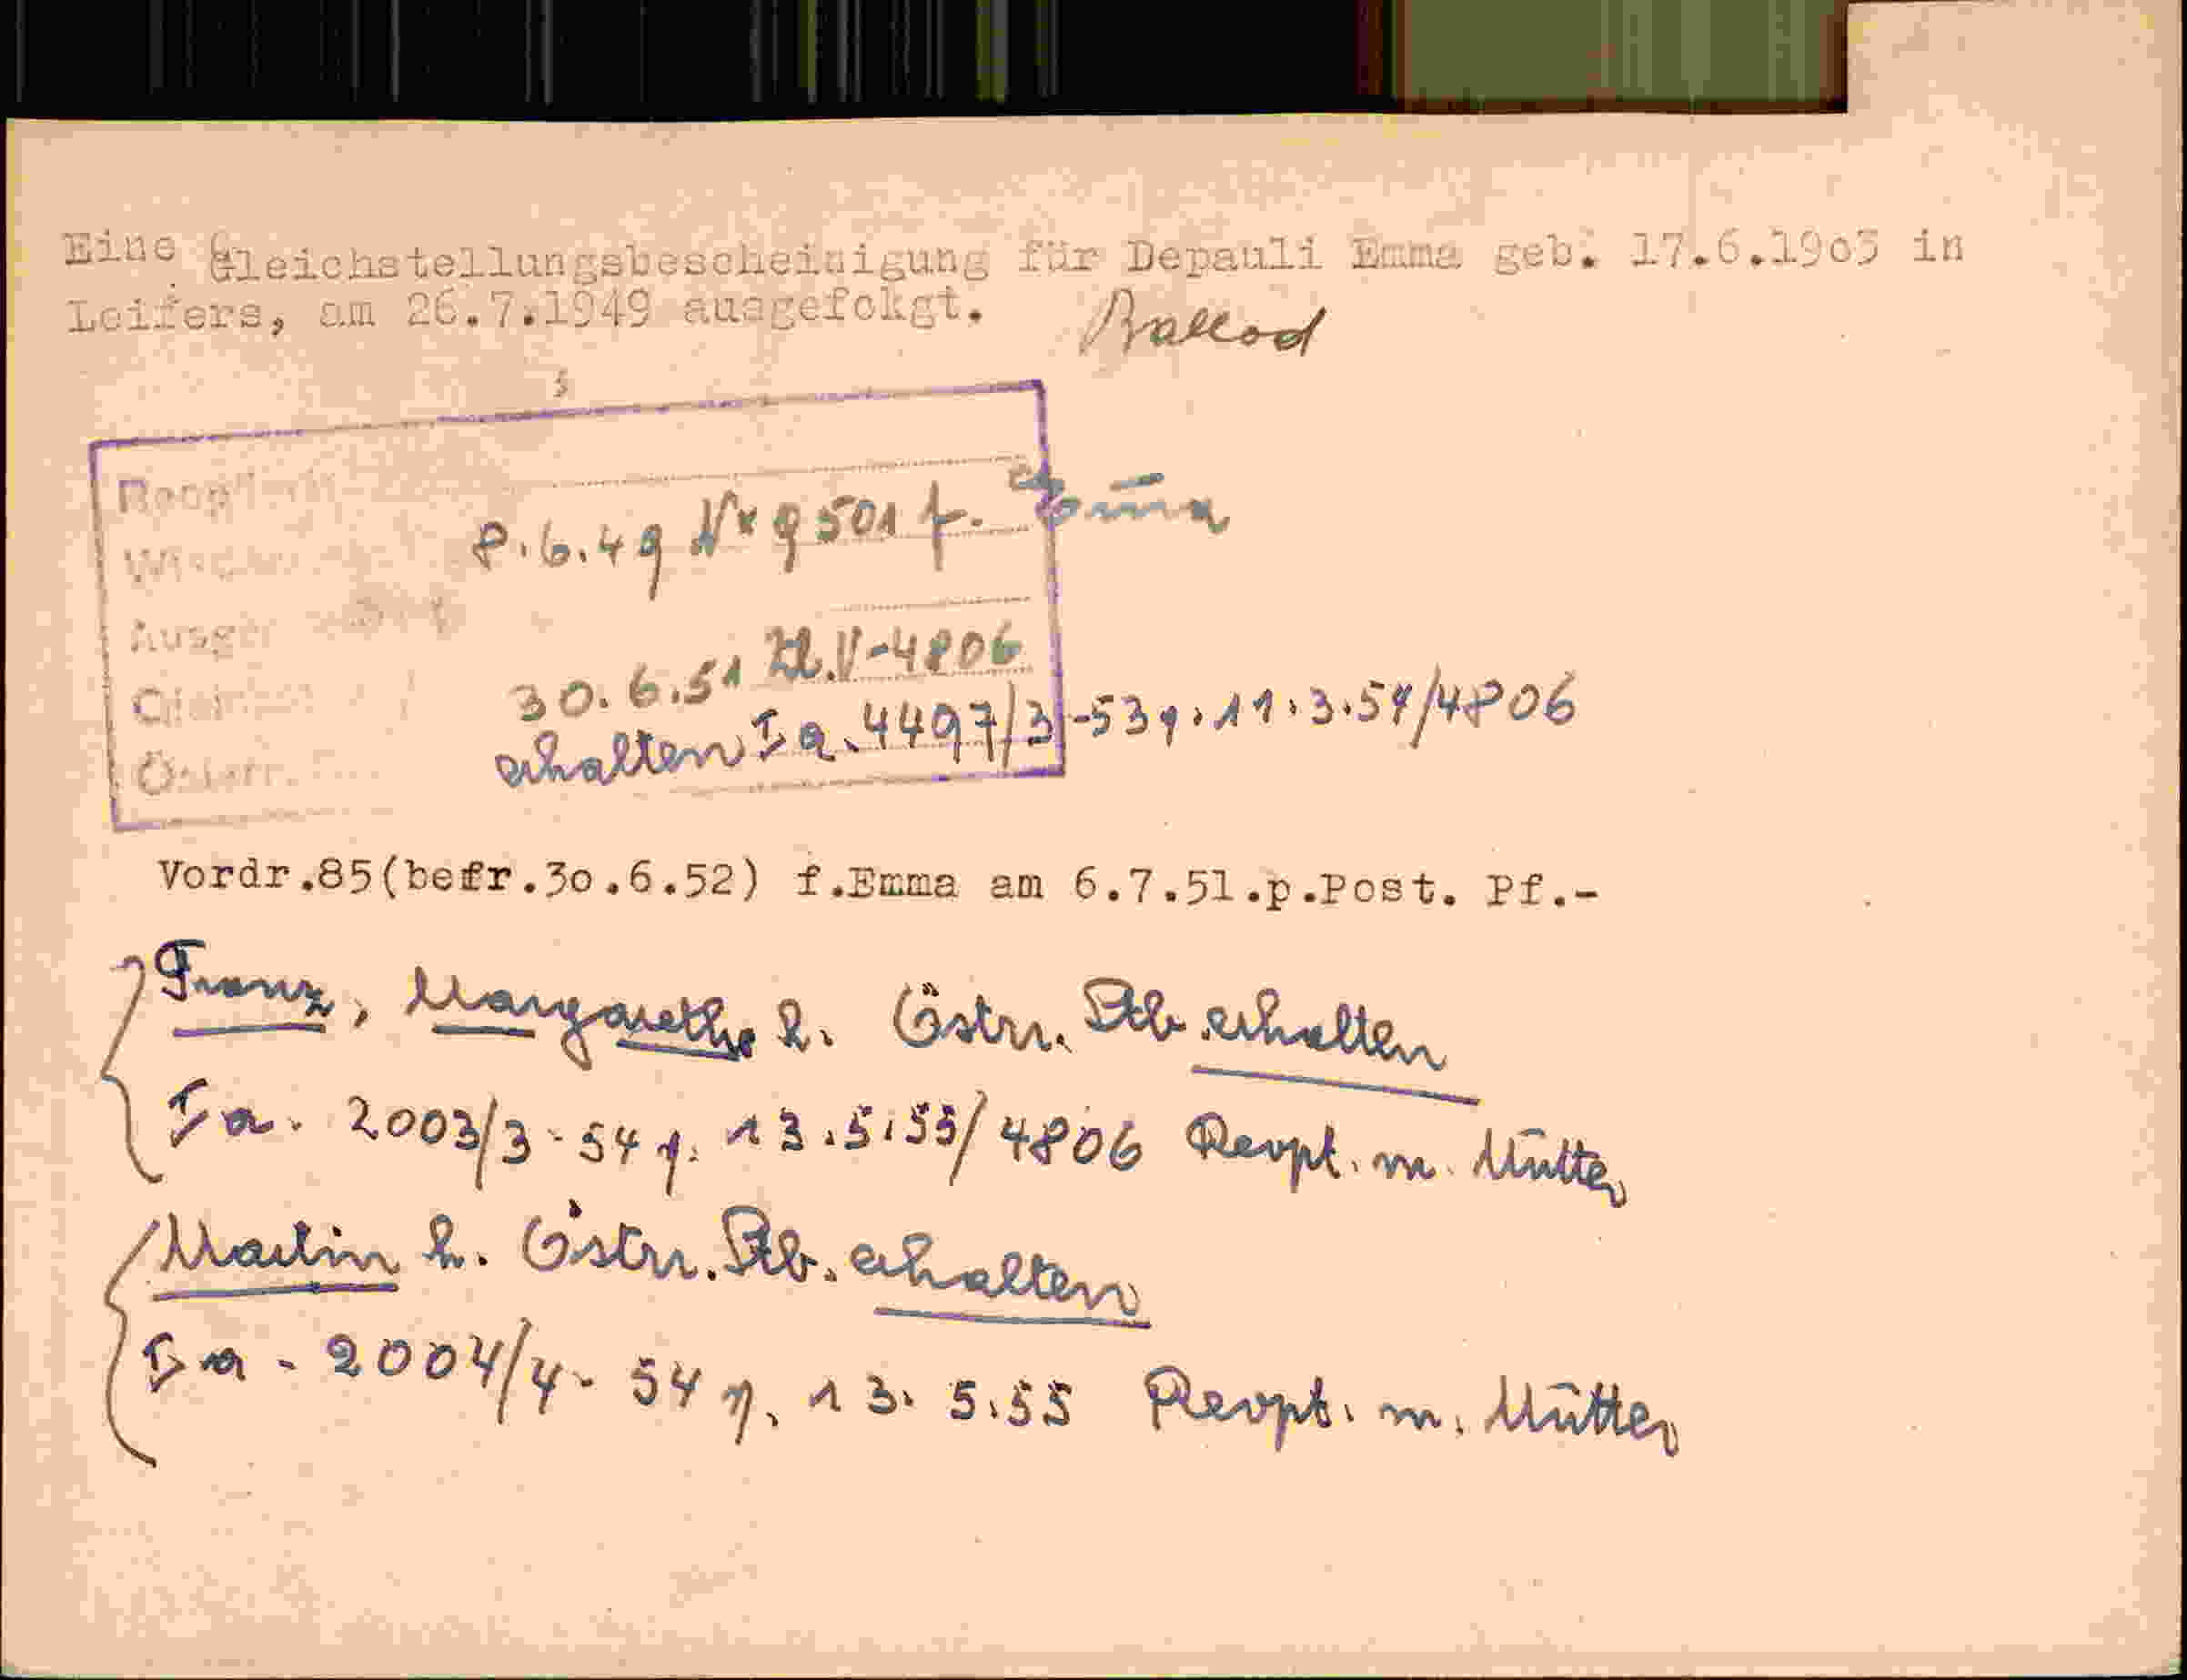 Eine Gleichstellungsbescheinigung für Depauli Emma geb. 17.6.1905 in
Leifers, am 26.7.1949 ausgefolgt.
8.6.49 Nr 9501 f. Emma
30.6.51 Zl.V-4806
erhalten Ia.4497/3-53 v. 11.3.54/4806
Vordr.85(befr.30.6.52) f.Emma am 6.7.51.p.Post. Pf.-
Franz, Margarethe h. Östrr. Stb. erhalten
Ia - 2003/3-54 v. 13.5.55/4806 Revpt. m. Mutter
Martin h. Östrr. Stb. erhalten
Ia - 2004/4-54 v. 13.5.55 Revpt. m. Mutter